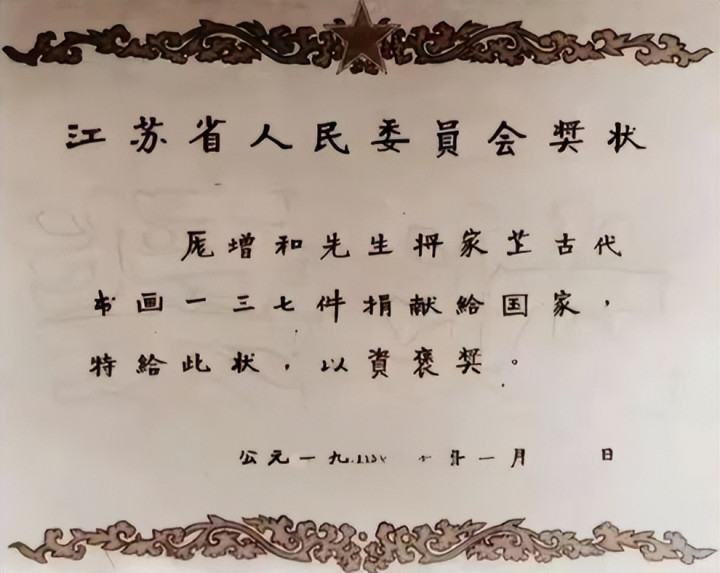 江苏省人民委員会奨状
厖增和先生将家芷古代
书画一三七件捐献給国家，
特給此状，以資褒奨。
公元一九 年一月 日